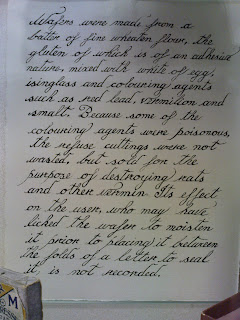 Wafers were made from a
batter of fine wheaten flour, the
gluten of which is of an adhesive
nature, mixed with white of egg,
isinglass and colouring agents
such as red lead, vermilion and
smalt. Because some of the
colouring agents were poisonous,
the refuse cuttings were not
wasted, but sold for the
purpose of destroying rats
and other vermin. Its effect
on the user, who may have
licked the wafer to moisten
it prior to placing it between
the folds of a letter to seal
it, is not recorded.
M